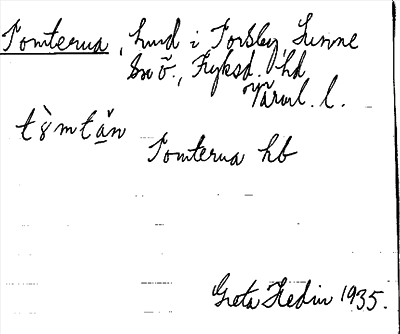 Tomterna, hmd i Torsby, Sunne
sn Ö., Fryksd. hd
Värml. l.
tòmtăn
Tomterna hb
Greta Hedin 1935.